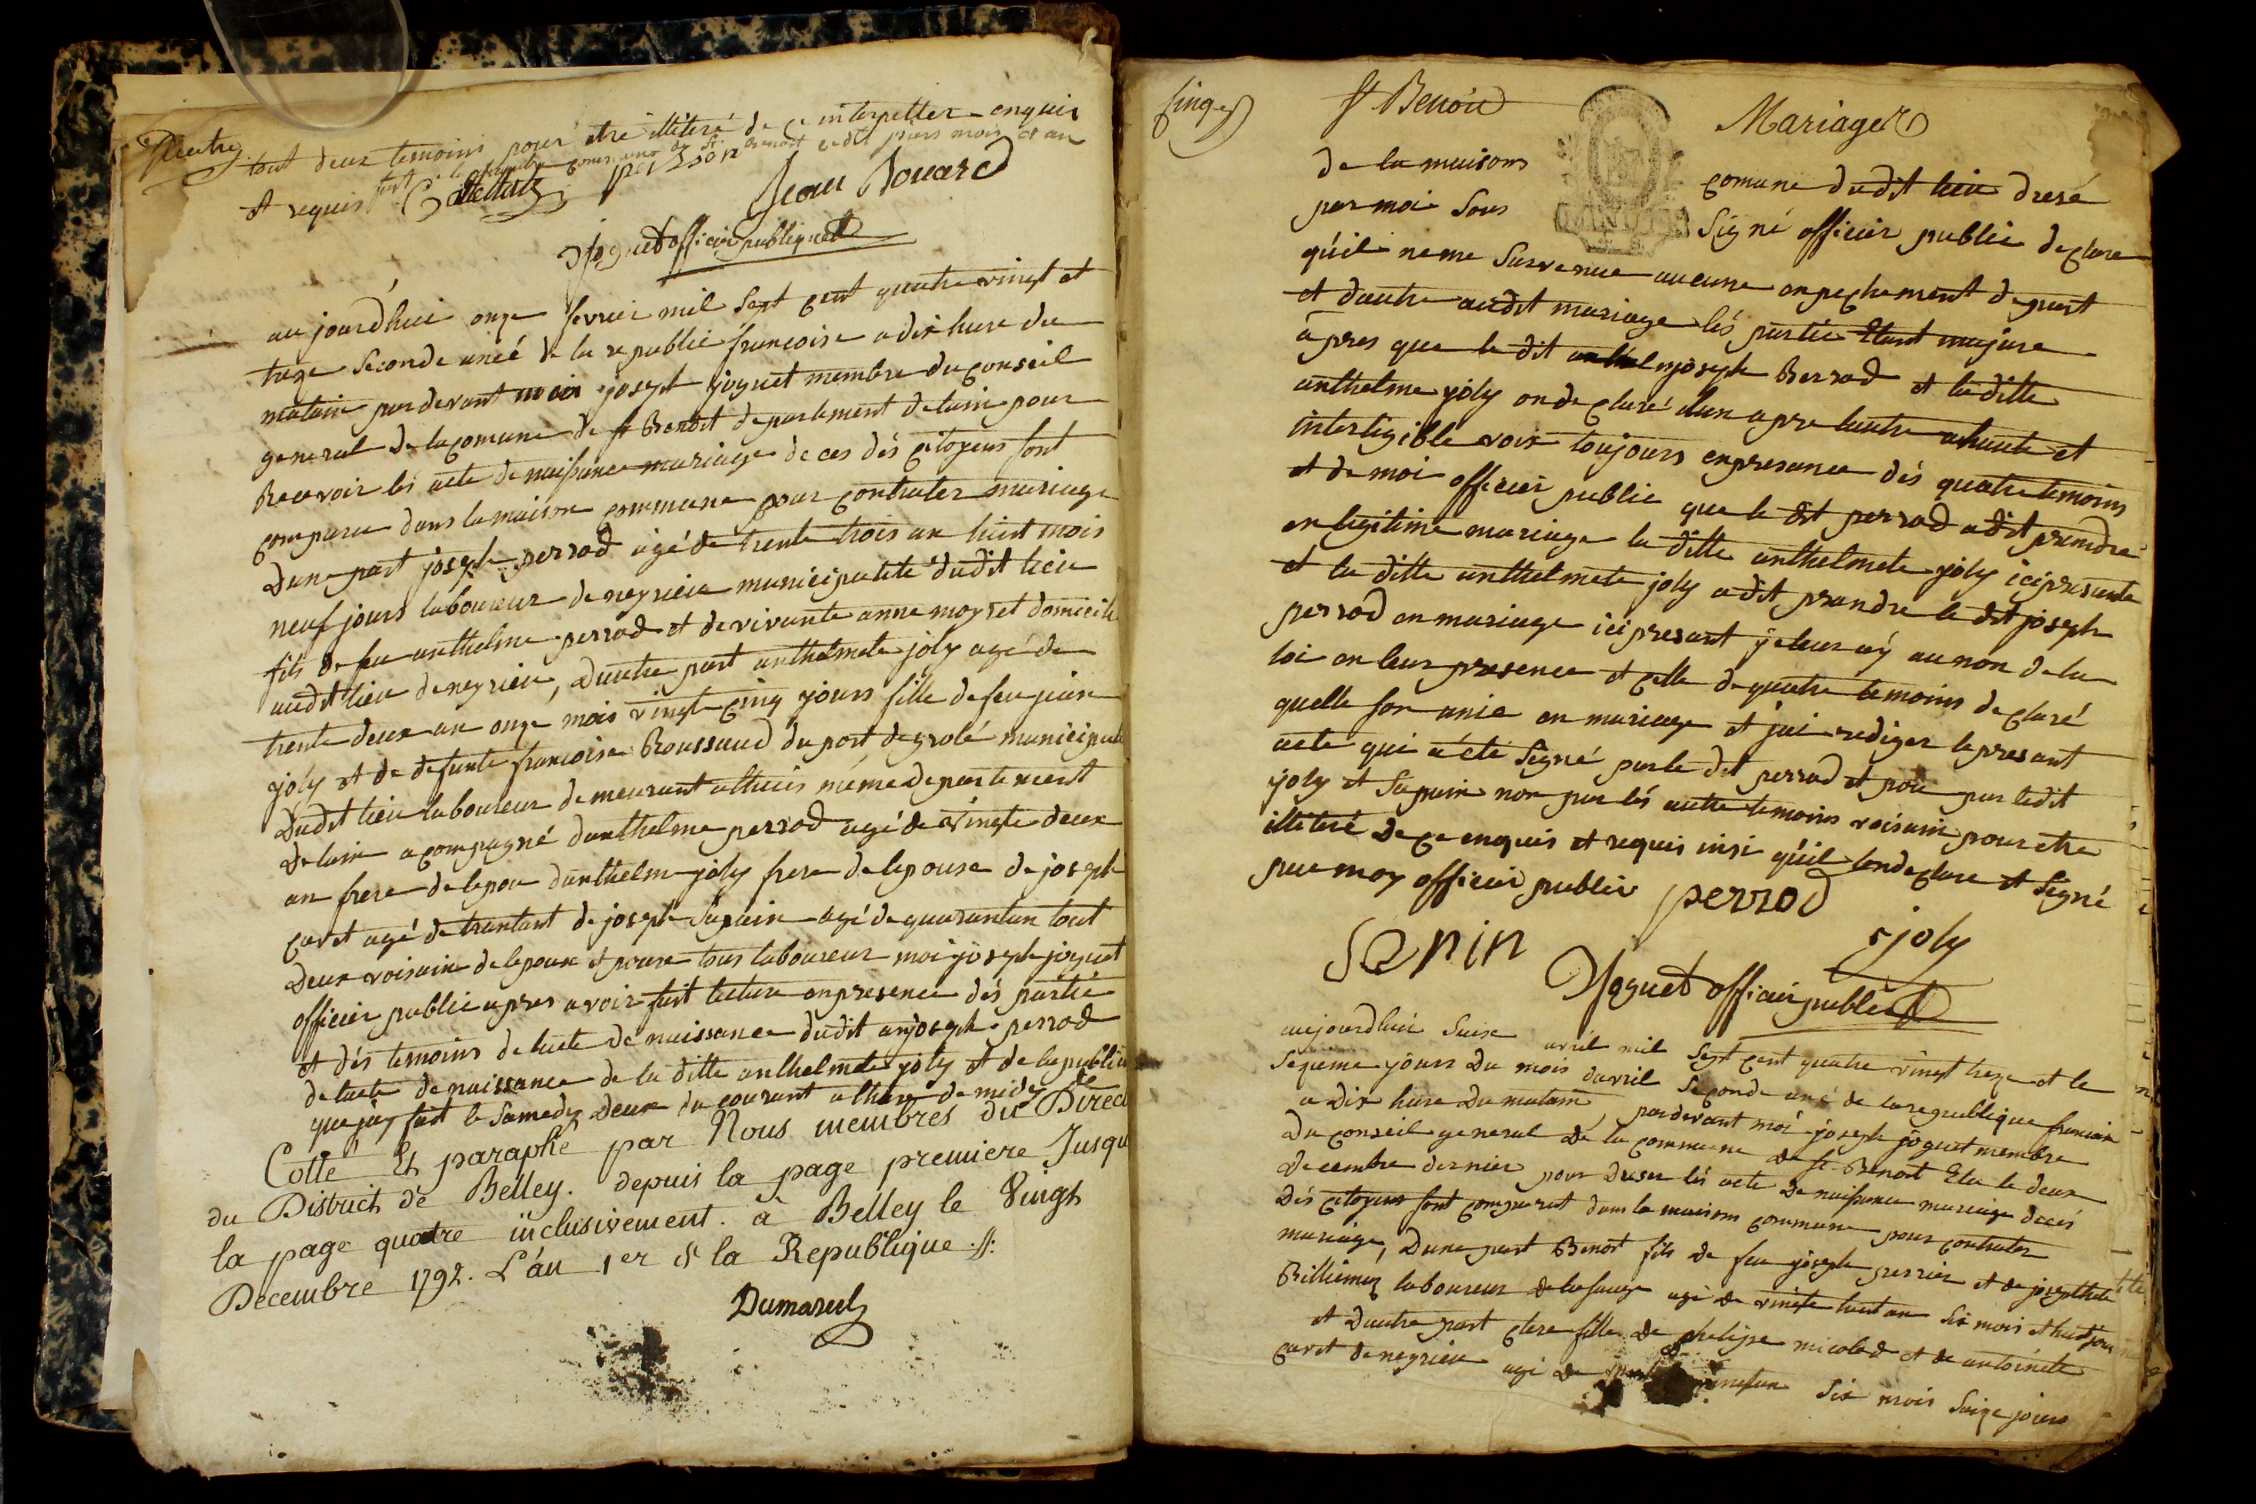 quatre
tout deux temoins pour etre illiteré de ce interpetter enquis
et requis fait commune de st Benoit ledit jours mois et an
perison
Jean Bouard
Joguet officier publique
aujourd'huis onze fevrier mil sept cent quatre vingt et
treze seconde aneé de la republic francoise a dix hure du
matain pardevant moi joseph joguet membre du conseil
general de la comune de st Benoit departement de lain pour
Recevoir les acte de naissance mariage deces dés citoyens sont
comparu dans la maison commune pour contrater mariage
Dune part joseph perrod agé de trente trois an huit mois
neuf jours laboureur de neyrieu municipalité dudit lieu
fils de feu anthelme perrod et de vivante anne moyret domicile
audit lieu de neyrieu, Dautre part anthelmete joly agé de
trente deux an onze mois vingt cinq jours fille de feu jean
joly et de defunte francoise Broussaud du port de grolé municipali
Dudit lieu laboureur demeurant althuis méme departement
De lain acompagné danthelme perrod agé de vingte deux
an frere de lepou danthelm joly frere de lepouse de joseph
caret agé de trantant de joseph Sapain agé de quarantan tout
Deux voisain de lepoux et pouse tous laboureur moi joseph joguet
officier public apres avoir fait lecture en presence dés partié
et dés temoins de lacte de naissance dudit an joseph perrod
de lacte de naissance de la ditte anthelmete joly et de la public
que jay fait le samedy Deux du courant a lheur de midy
Cotté Et paraphé par Nous membres du Direc
du District de Belley. depuis la page premiere Jusqu
la page quatre inclusivement. à Belley le Vingt
Decembre 1792. L'an 1er de la Republique.
Dumarest
cinq
st Benoit
Mariage
de la maisons comune dudit lieu dresé
par moi sous signé officier public declare
quil neme survenue aucune enpechement de part
et dautre audit mariage lés partie Etant majure
âpres que le dit joseph Berrod et la ditte
anthelme joly on declaré dun apre lautre a haute et
intertigible voix toujours enpresance dés quatre temoins
et de moi officier public que le dit perrod a dit prendre
en legitime mariage la ditte anthelmete joly ici presante
et la ditte anthelmete joly a dit prandre le dit joseph
perrod en mariage ici presant je leur aÿ au non de la
loi en leur presence et celle de quatre temoins declaré
quelle son unie en mariage et jai rediger le presant
acte qui a été signé par le dit perrod et pou par ledit
joly et Sapain non par lés autre temoins voisain pour etre
illiteré de ce enquis et requis insi quil londeclare et signé
par moy officier public
perrod
Sapin
joly
Joguet officier public
aujourdhui Saise avril mil sept cent quatre vingt treze et le
sezieme jours du mois davril seconde ané de la republique francaise
a dix hure du matain, pardevant moi joseph joguet membre
Du conseil general de la commune de st Benoit Elu le deux
Decembre dernier pour drésér lés acte de naissance mariage decés
Dés citoyens sont comparut dans la maison commune pour contrater
mariage, Dune part Benoit fils de feu joseph perrier et de josephthete
Billiémaz laboureur de la sauge agé de vingte huit an six mois et huit jour
et Dautre part clere fille de phelippe micoled et de antoinete
caret de neyrieu agé de six mois saize jours